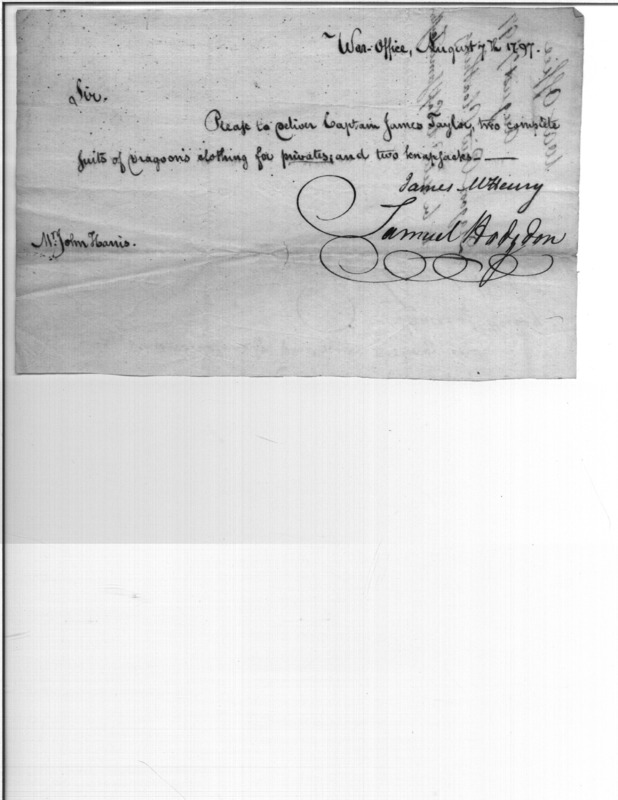 War-Office, August 7th 1797.
Sir.
Please to deliver Captain James Taylor, two complete
suits of dragoon's clothing for privates; and two knapsacks.
James McHenry
Samuel Hodgdon
Mr. John Harris.